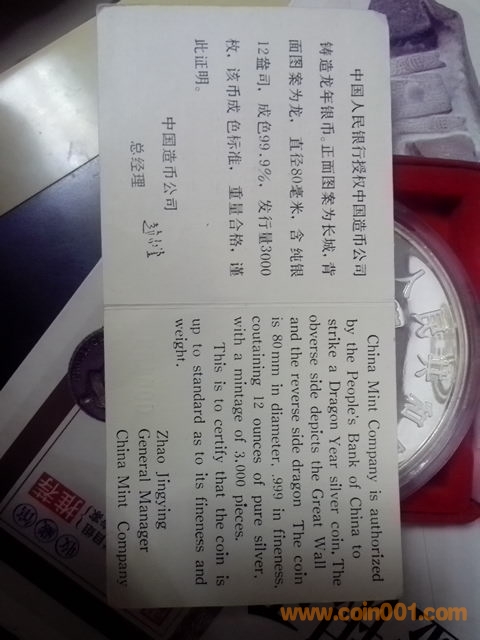 中国人民银行授权中国造币公司
铸造龙年银币。正面图案为长城，背
面图案为龙，直径80毫米，含纯银
12盎司，成色99.9%，发行量3000
枚，该币成色标准，重量合格，谨
此证明。
中国造币公司
总经理
China Mint Company is authorized
by the People's Bank of China to
strike a Dragon Year silver coin. The
obverse side depicts the Great Wall
and the reverse side dragon The coin
is 80mm in diameter, .999 in fineness,
coutaining 12 ounces of pure silver,
with a mintage of 3,000 pieces.
This is to certify that the coin is
up to standard as to its fineness and
weight.
Zhao Jingying
General Manager
China Mint Company
人民共
推荐
www.coin001.com